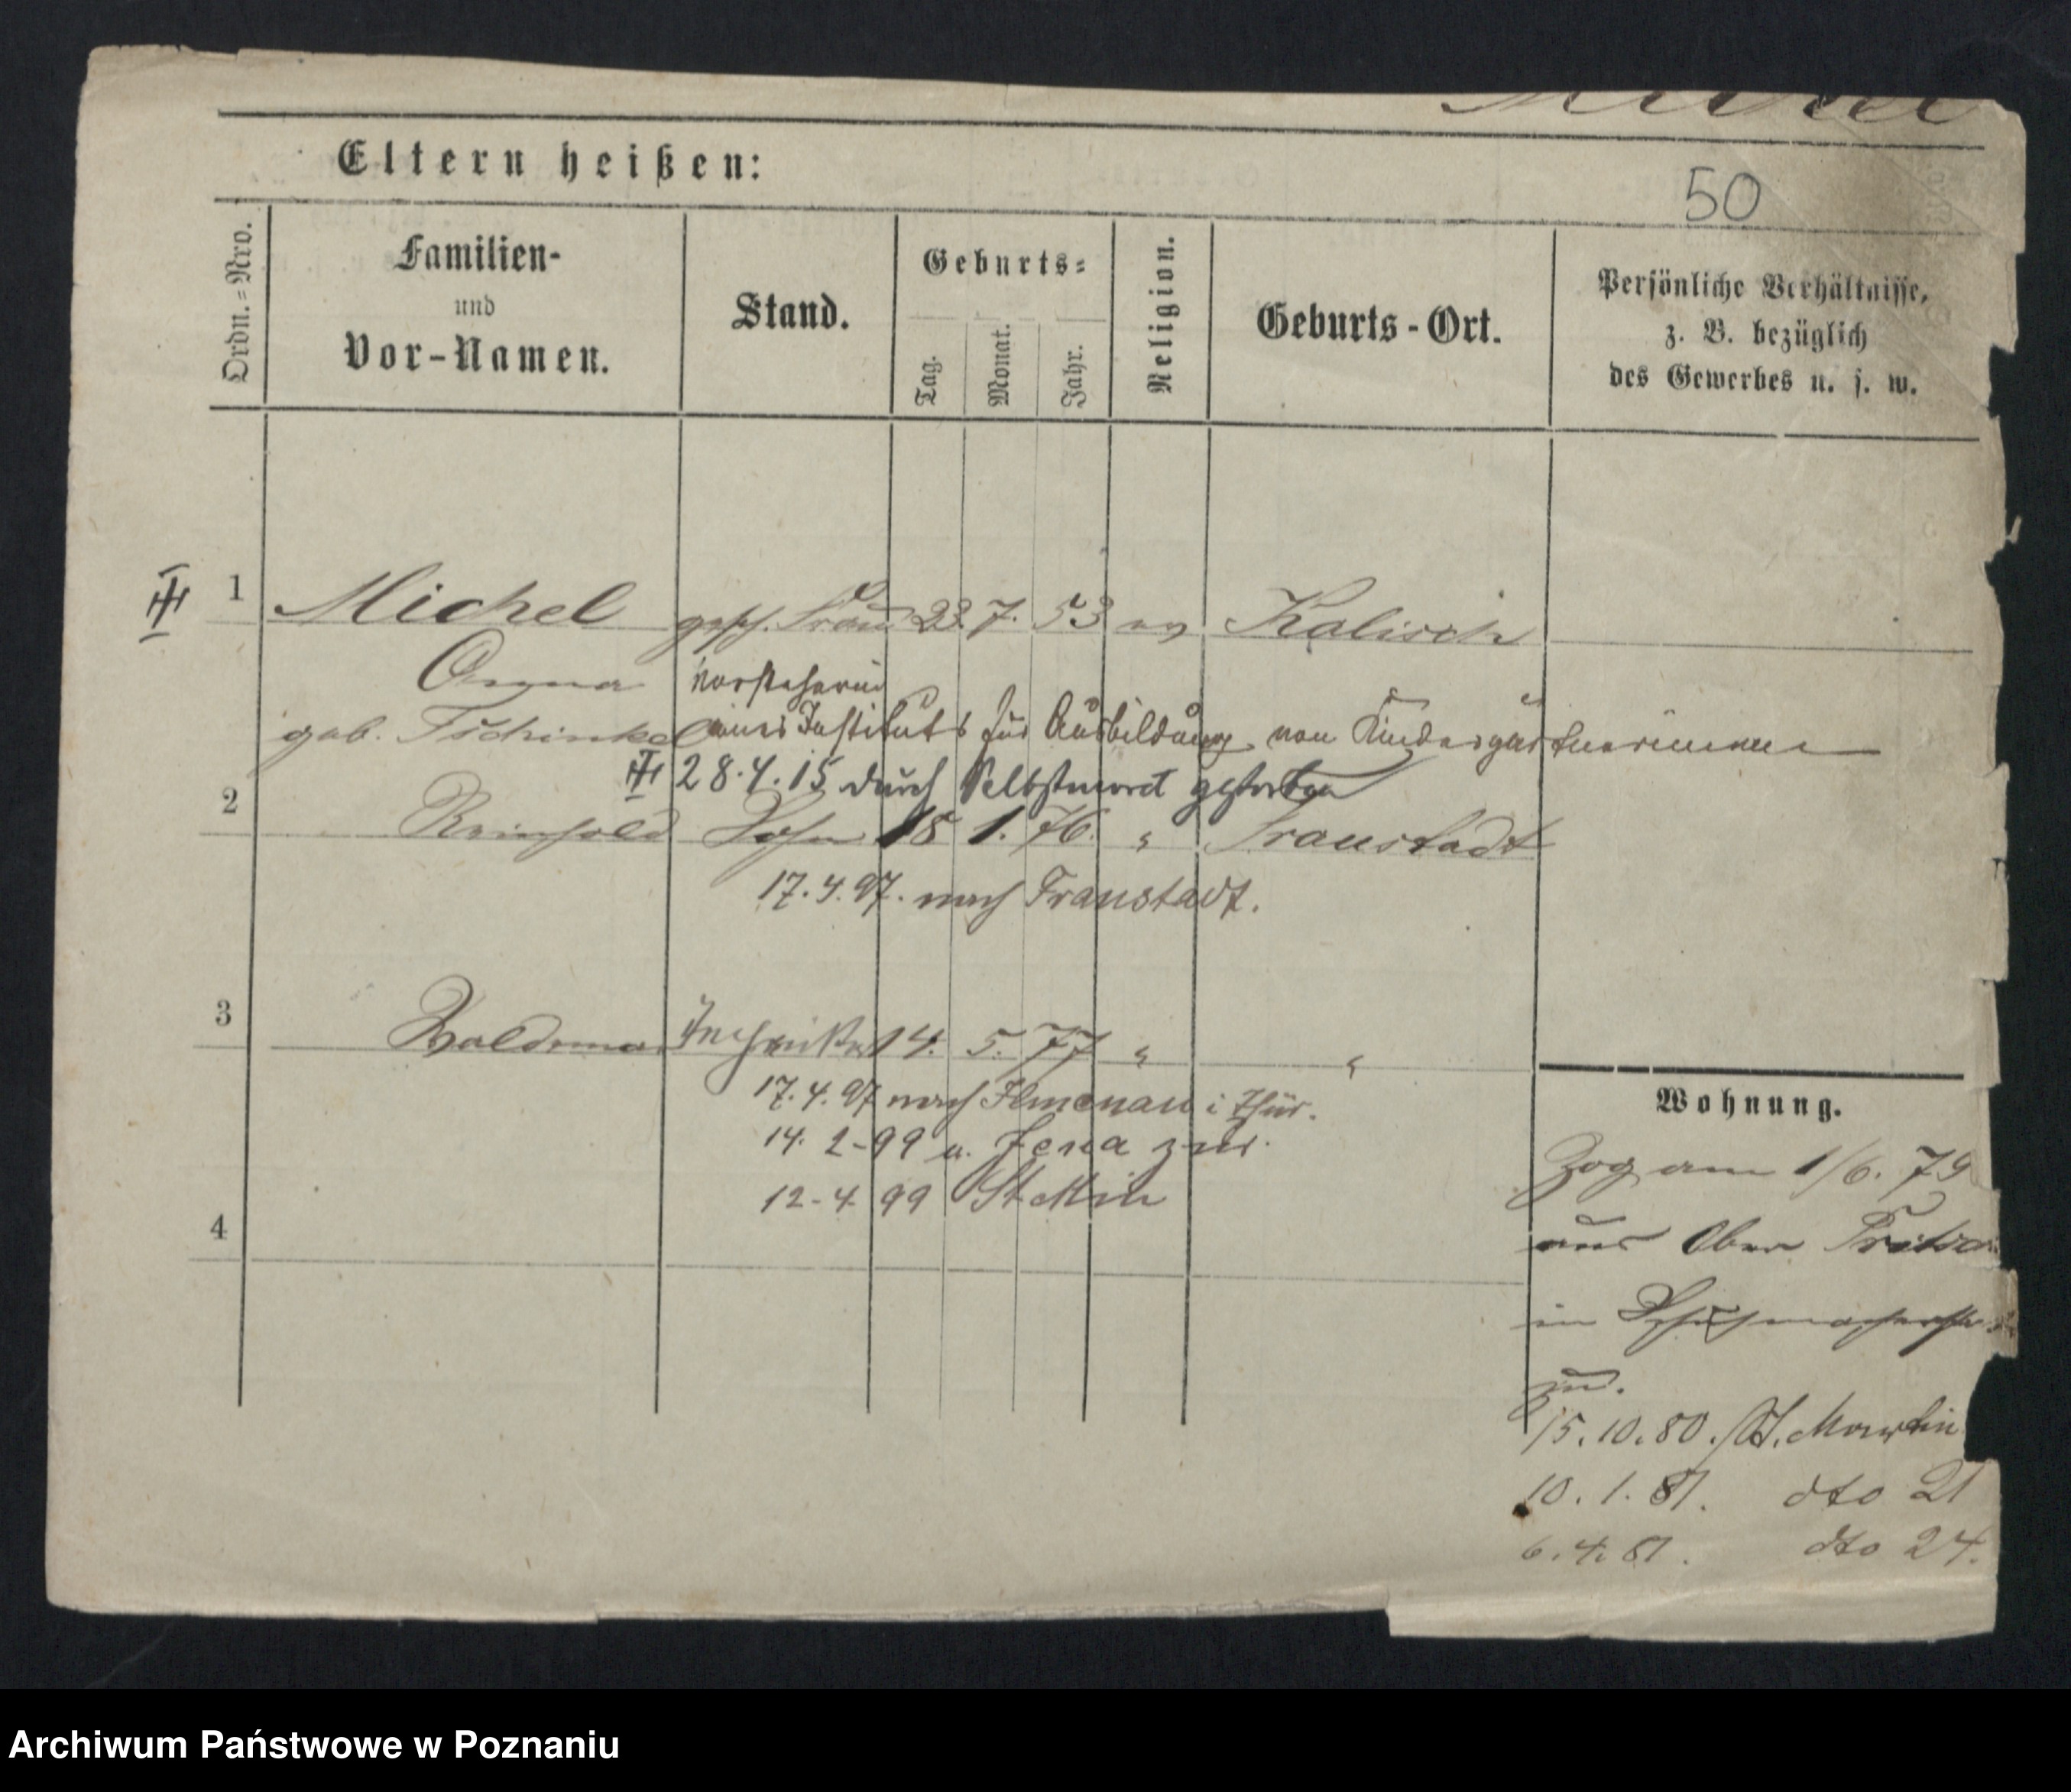 Michel
Eltern heißen:
50
Ordn.=Nro.
Familien-
und
Vor-Namen.
Stand.
Geburts=
Tag.
Monat.
Jahr.
Religion.
Geburts-Ort.
Persönliche Verhältnisse,
z. B. bezüglich
des Gewerbes u. s. w.
1 Michel gesch. Frau 23. 7. 53 ev Kalisch
Anna Vorsteherin
geb. Tschinkel eines Instituts für Ausbildung von Kindergärtnerinnen
28.4.15 durch Selbstmord gestorben
2 Reinhold Sohn 18 1. 76. " Fraustadt
17.4.97. nach Fraustadt.
3 Waldemar Techniker 14. 5. 77 " "
17.4.97 nach Ilmenau i Thür.
14. 2-99 v. Jena zur.
12-4 99 St. Min
4
Wohnung.
Zog am 1/6. 79
aus Ober
in
zu.
15.10.80. St. Martin
10. 1. 81. dto 21
6.4.81. dto 24.
Archiwum Państwowe w Poznaniu